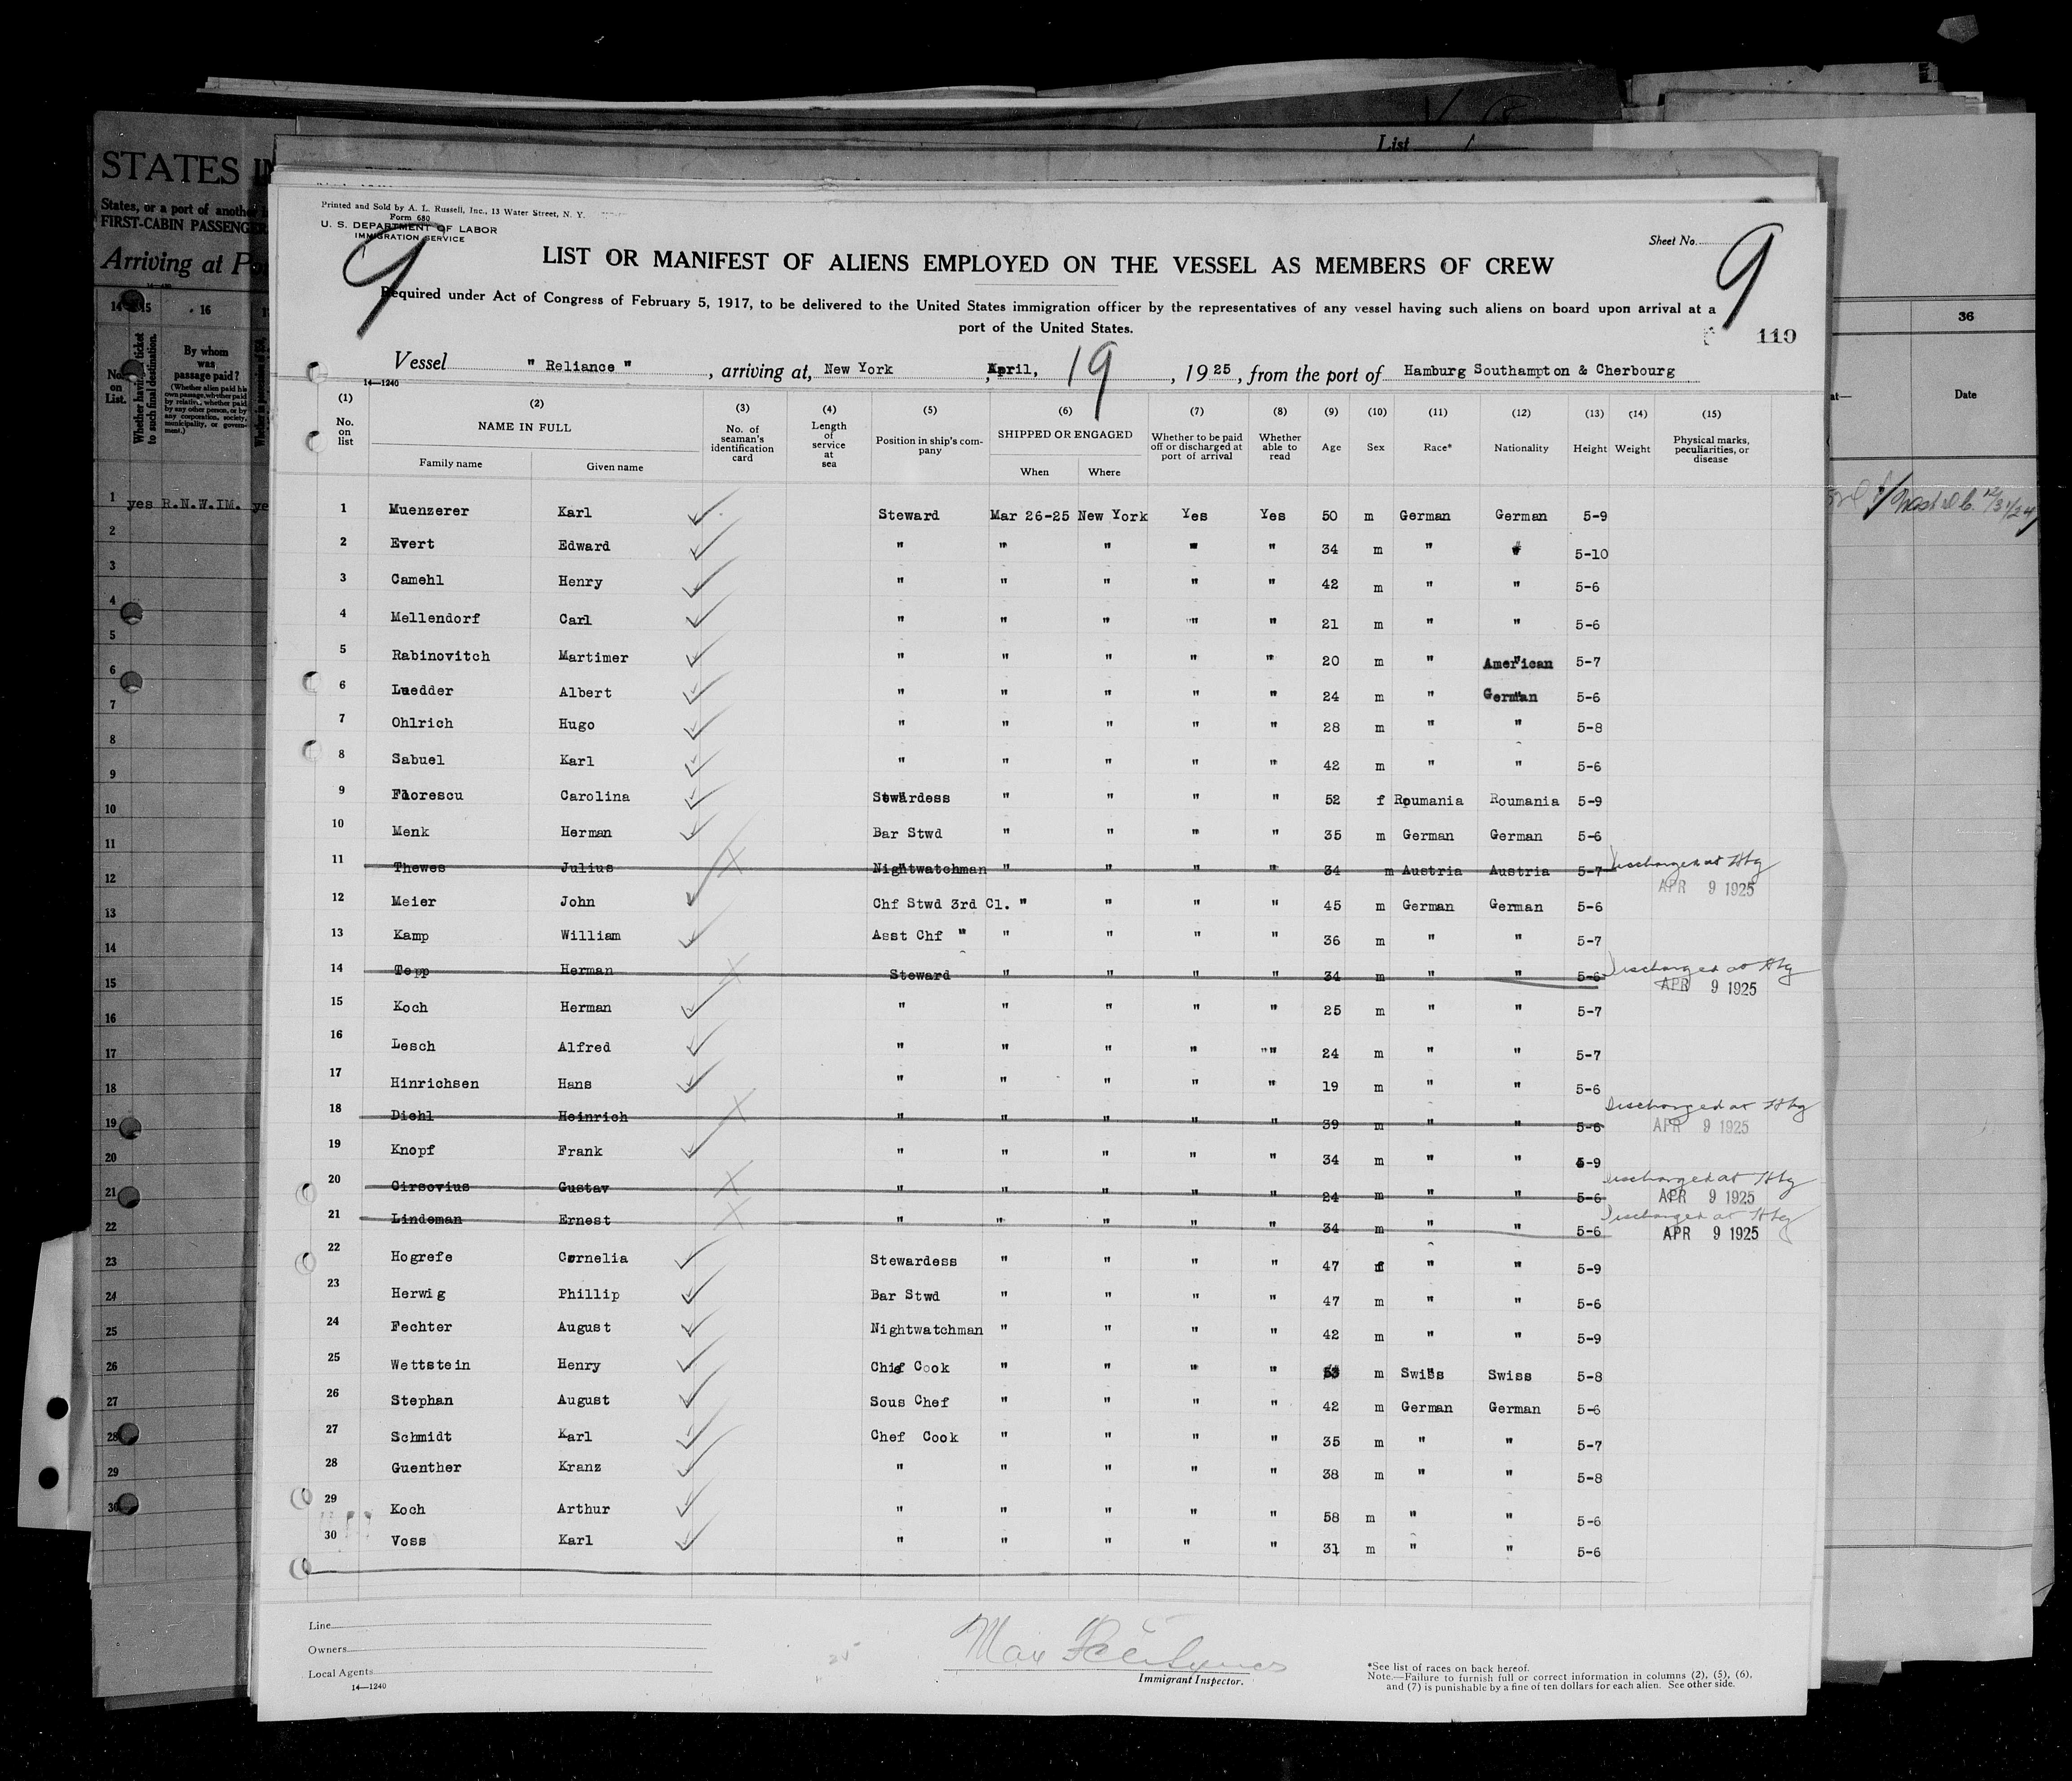 List
STATES IN
States, or a port of another
FIRST-CABIN PASSENGER
Arriving at Po
14 15 16
No. on List.
Whether having ticket to such final destination.
By whom was passage paid?
(Whether alien paid his own passage, whether paid by relative, whether paid by any other person, or by any corporation, society, municipality, or government.)
1 yes R.N.W.IM. ye
2
3
4
5
6
7
8
9
10
11
12
13
14
15
16
17
18
19
20
21
22
23
24
25
26
27
28
29
30
Printed and Sold by A. L. Russell, Inc., 13 Water Street, N. Y.
Form 680
U. S. DEPARTMENT OF LABOR
IMMIGRATION SERVICE
9
Sheet No. 9
LIST OR MANIFEST OF ALIENS EMPLOYED ON THE VESSEL AS MEMBERS OF CREW
Required under Act of Congress of February 5, 1917, to be delivered to the United States immigration officer by the representatives of any vessel having such aliens on board upon arrival at a
port of the United States.
119
Vessel " Reliance ", arriving at, New York, April, 19, 1925, from the port of Hamburg Southampton & Cherbourg
14—1240
(1) (2) (3) (4) (5) (6) (7) (8) (9) (10) (11) (12) (13) (14) (15)
No. on list
NAME IN FULL
Family name Given name
No. of seaman's identification card
Length of service at sea
Position in ship's company
SHIPPED OR ENGAGED
When Where
Whether to be paid off or discharged at port of arrival
Whether able to read
Age Sex Race* Nationality Height Weight
Physical marks, peculiarities, or disease
1 Muenzerer Karl Steward Mar 26-25 New York Yes Yes 50 m German German 5-9
2 Evert Edward " " " " " 34 m " " 5-10
3 Camehl Henry " " " " " 42 m " " 5-6
4 Mellendorf Carl " " " " " 21 m " " 5-6
5 Rabinovitch Martimer " " " " " 20 m " American 5-7
6 Luedder Albert " " " " " 24 m " German 5-6
7 Ohlrich Hugo " " " " " 28 m " " 5-8
8 Sabuel Karl " " " " " 42 m " " 5-6
9 Florescu Carolina Stewardess " " " " 52 f Roumania Roumania 5-9
10 Menk Herman Bar Stwd " " " " 35 m German German 5-6
11 Thewes Julius Nightwatchman " " " " 34 m Austria Austria 5-7 Discharged at Hbg
APR 9 1925
12 Meier John Chf Stwd 3rd Cl. " " " " 45 m German German 5-6
13 Kamp William Asst Chf " " " " " 36 m " " 5-7
14 Topp Herman Steward " " " " 34 m " " 5-6 Discharged at Hbg
APR 9 1925
15 Koch Herman " " " " " 25 m " " 5-7
16 Lesch Alfred " " " " "" 24 m " " 5-7
17 Hinrichsen Hans " " " " " 19 m " " 5-6
18 Diehl Heinrich " " " " " 39 m " " 5-6 Discharged at Hbg
APR 9 1925
19 Knopf Frank " " " " " 34 m " " 5-9
20 Cirsovius Gustav " " " " " 24 m " " 5-6 Discharged at Hbg
APR 9 1925
21 Lindeman Ernest " " " " " 34 m " " 5-6 Discharged at Hbg
APR 9 1925
22 Hogrefe Cornelia Stewardess " " " " 47 f " " 5-9
23 Herwig Phillip Bar Stwd " " " " 47 m " " 5-6
24 Fechter August Nightwatchman " " " " 42 m " " 5-9
25 Wettstein Henry Chief Cook " " " " 53 m Swiss Swiss 5-8
26 Stephan August Sous Chef " " " " 42 m German German 5-6
27 Schmidt Karl Chef Cook " " " " 35 m " " 5-7
28 Guenther Kranz " " " " " 38 m " " 5-8
29 Koch Arthur " " " " " 58 m " " 5-6
30 Voss Karl " " " " " 31 m " " 5-6
Line
Owners
Local Agents
14—1240
Max
Immigrant Inspector.
*See list of races on back hereof.
Note.—Failure to furnish full or correct information in columns (2), (5), (6),
and (7) is punishable by a fine of ten dollars for each alien. See other side.
36
at—
Date
12/31/24